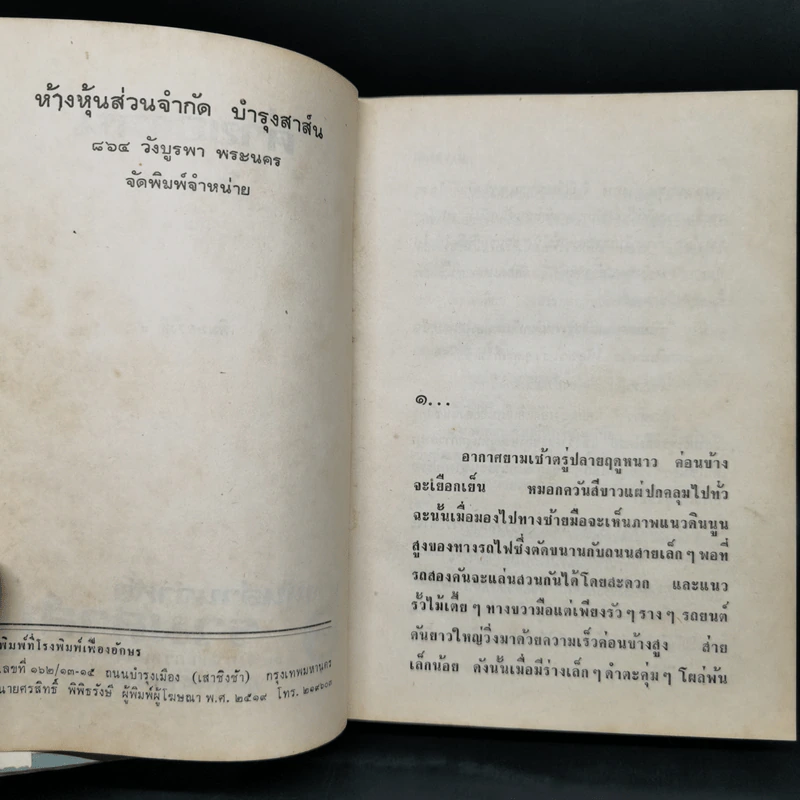 ห้างหุ้นส่วนจำกัด บำรุงสาส์น
๘๖๔ วังบูรพา พระนคร
จัดพิมพ์จำหน่าย
พิมพ์ที่โรงพิมพ์เฟื่องอักษร
เลขที่ ๑๖๒/๑๓-๑๕ ถนนบำรุงเมือง (เสาชิงช้า) กรุงเทพมหานคร
นายศรสิทธิ์ พิพิธรังษี ผู้พิมพ์ผู้โฆษณา พ.ศ. ๒๕๑๙ โทร.
๑...
อากาศยามเช้าตรู่ปลายฤดูหนาว ค่อนข้าง
จะเยือกเย็น หมอกควันสีขาวแผ่ปกคลุมไปทั่ว
ฉะนั้นเมื่อมองไปทางซ้ายมือจะเห็นภาพแนวดินนูน
สูงของทางรถไฟซึ่งตัดขนานกับถนนสายเล็กๆ พอที่
รถสองคันจะแล่นสวนกันได้โดยสะดวก และแนว
รั้วไม้เตี้ยๆ ทางขวามือแต่เพียงรัวๆ รางๆ รถยนต์
คันยาวใหญ่วิ่งมาด้วยความเร็วค่อนข้างสูง ส่าย
เล็กน้อย ดังนั้นเมื่อมีร่างเล็กๆ ดำตะคุ่มๆ โผล่พ้น